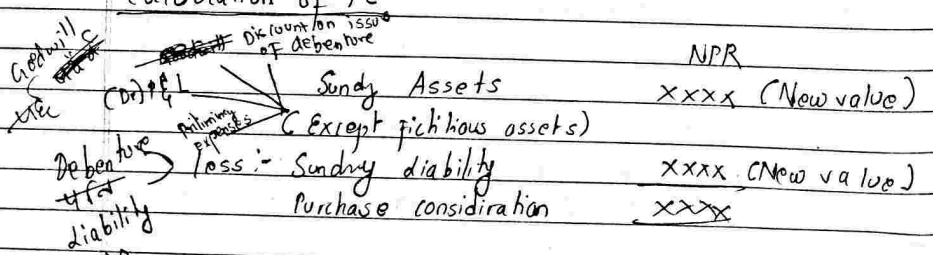 Calculation of PC
Goodwill
Discount on issue
of debenture
NPR
(Dr) P&L
Sundy Assets xxxx (New value)
Priliminary
expenses
(Except fichitious assets)
Debenture
less:- Sundry liability xxxx (New value)
liability
Purchase considiration xxxx